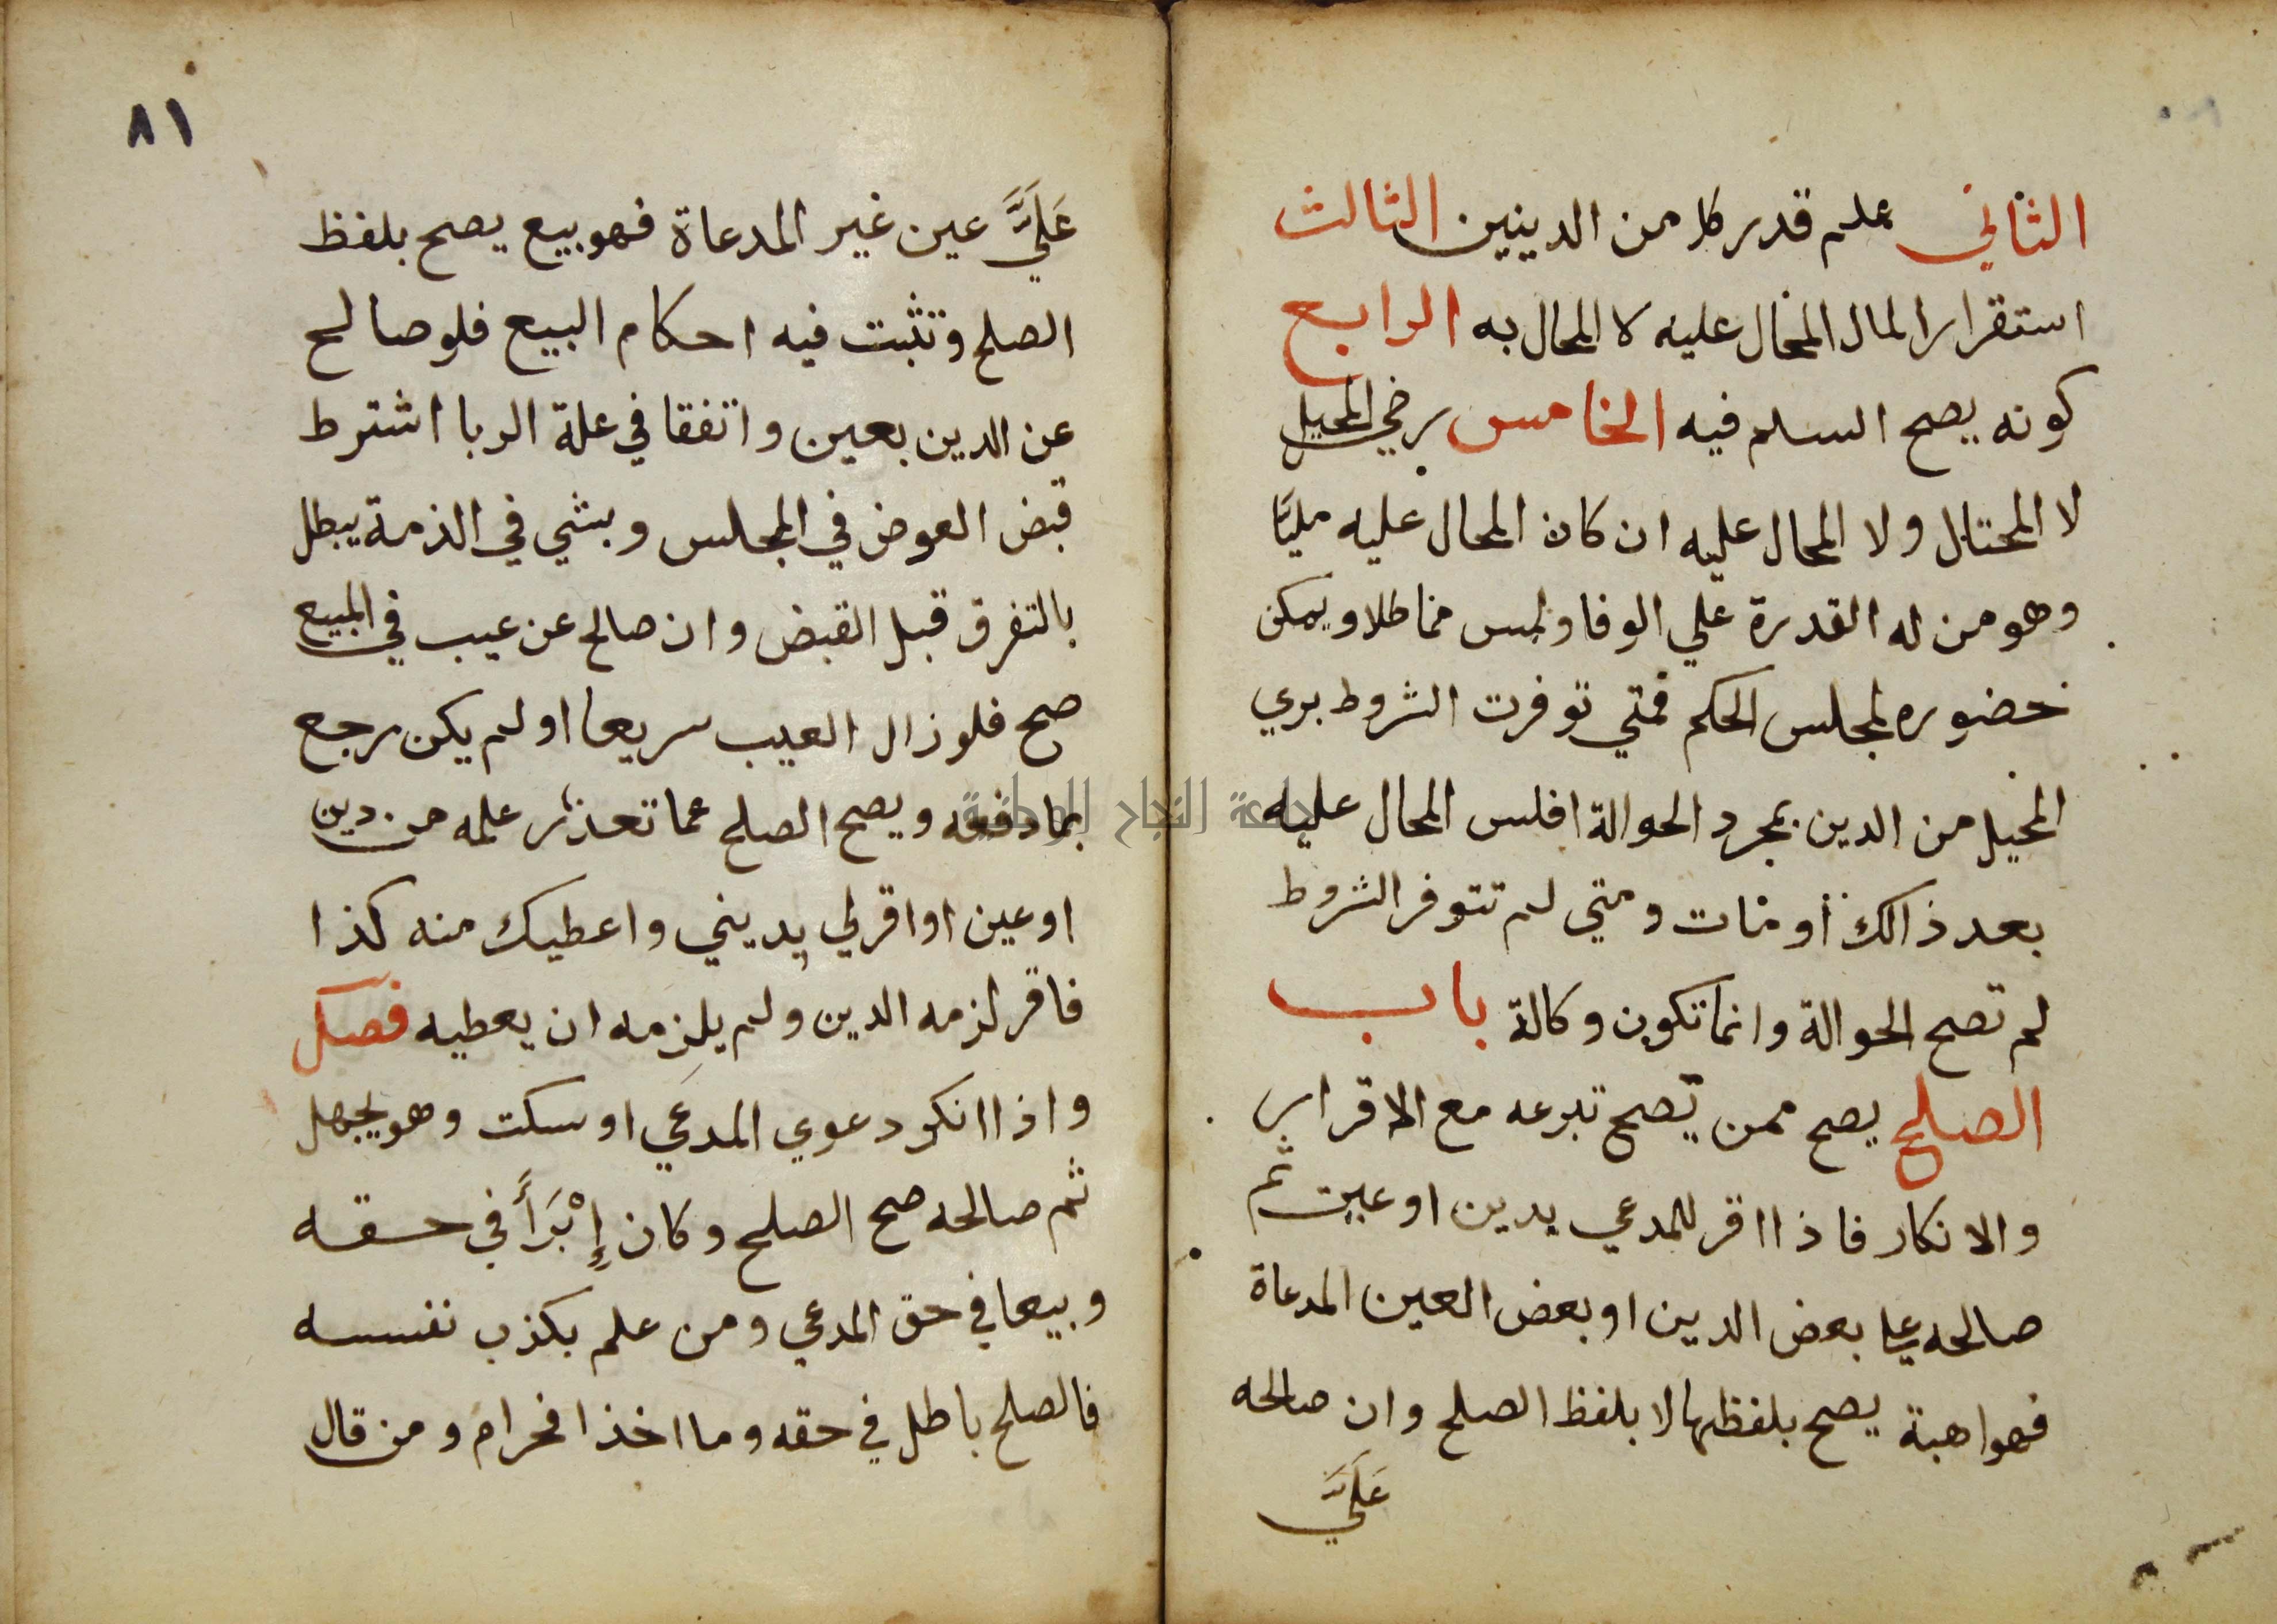 الثاني علم قدر كل من الدينين الثالث
استقرار المال المحال عليه لا المحال به الرابع
كونه يصح السلم فيه الخامس رضي المحيل
لا المحتال ولا المحال عليه ان كان المحال عليه مليًا
وهو من له القدرة علي الوفا وليس مماطلا ويمكن
حضوره لمجلس الحكم فمتي توفرت الشروط بري
المحيل من الدين بمجرد الحوالة افلس المحال عليه
بعد ذالك أو مات ومتي لم تتوفر الشروط
لم تصح الحوالة وانما تكون وكالة باب
الصلح يصح ممن تصح تبرعه مع الاقرار
والانكار فاذا اقر للمدعي بدين او عين ثم
صالحه علي بعض الدين او بعض العين المدعاة
فهو اهبة يصح بلفظها لا بلفظ الصلح وان صالحه
عَلَيَّ
٨١
عَلَيَّ عين غير المدعاة فهو بيع يصح بلفظ
الصلح وتثبت فيه احكام البيع فلو صالح
عن الدين بعين واتفقا في علة الربا اشترط
قبض العوض في المجلس وبشي في الذمة يبطل
بالتفرق قبل القبض وان صالح عن عيب في المبيع
صح فلو زال العيب سريعا او لم يكن رجع
بما دفعه ويصح الصلح عما تعذر علمه من دين
او عين او اقر لي بديني واعطيك منه كذا
فاقر لزمه الدين ولم يلزمه ان يعطيه فصل
واذا انكر دعوي المدعي او سكت وهو يجهل
ثم صالحه صح الصلح وكان إِبْرَأً في حقه
وبيعا في حق المدعي ومن علم بكذب نفسه
فالصلح باطل في حقه وما اخذا فحرام ومن قال
جامعة النجاح الوطنية